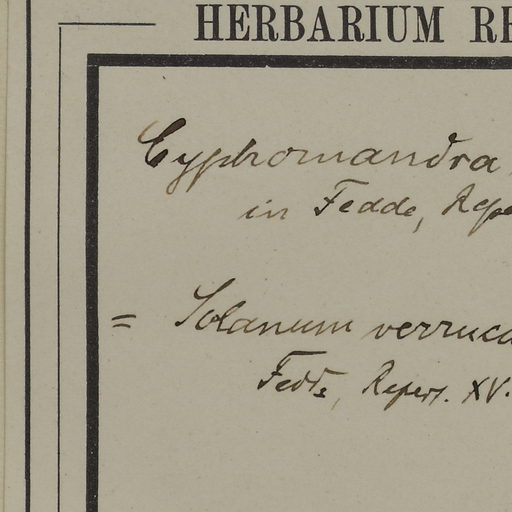 HERBARIUM RE
Cyphomandra
in Fedde, Repe
= Solanum verruco
Fedde, Repert. XV.